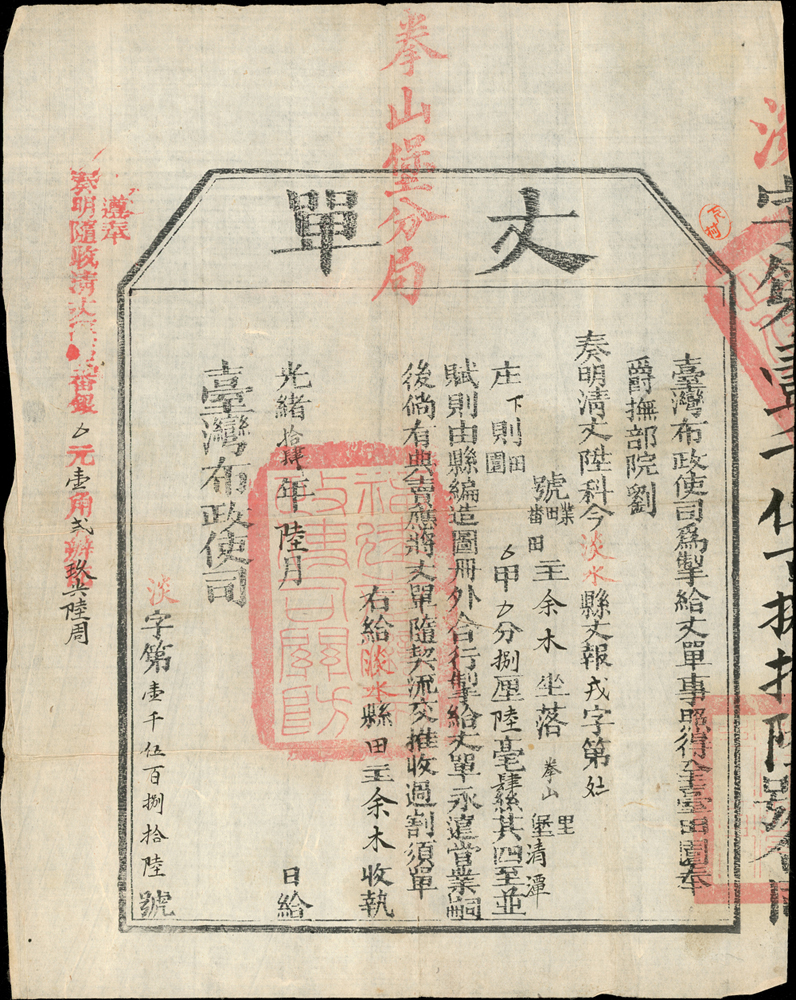 拳山堡分局
丈單
臺灣布政使司爲掣給丈單事照得全臺田園奉
爵撫部院劉
奏明清丈陞科今淡水縣丈報戎字第
號業田番田主余木坐落拳山里堡清潭
庄下則田園甲分捌厘陸毫肆絲其四至並
賦則由縣編造圖冊外合行掣給丈單永遠營業嗣
後倘有典賣應將丈單隨契流交推收過割須單
右給淡水縣田主余木收執
光緒拾肆年陸月 日給
臺灣布政使司
淡字第壹千伍百捌拾陸號
遵奉
奏明隨收清丈番銀元壹角弍辦玖共陸周